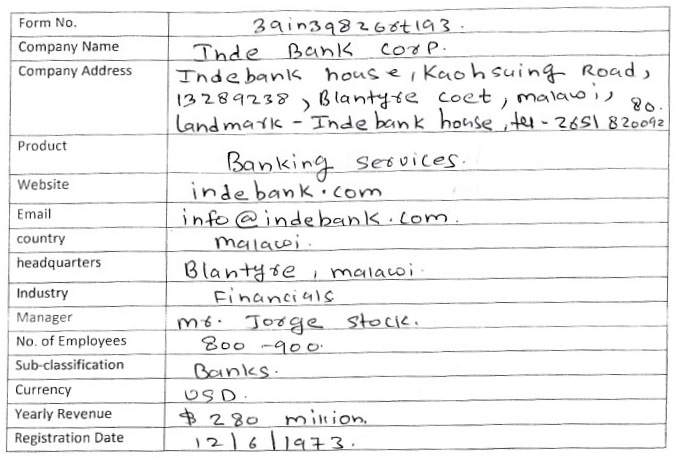 Form No. 39in39826rt193.
Company Name Inde Bank Corp.
Company Address Indebank house, Kaohsuing Road,
13289238, Blantyre coet, malawi,
landmark - Indebank house, tel - 2651 82009280.
Product Banking services.
Website indebank.com
Email info@indebank.com.
country malawi.
headquarters Blantyre, malawi.
Industry Financials
Manager mr. Jorge stock.
No. of Employees 800-900.
Sub-classification Banks.
Currency USD.
Yearly Revenue $ 280 million.
Registration Date 12/6/1973.